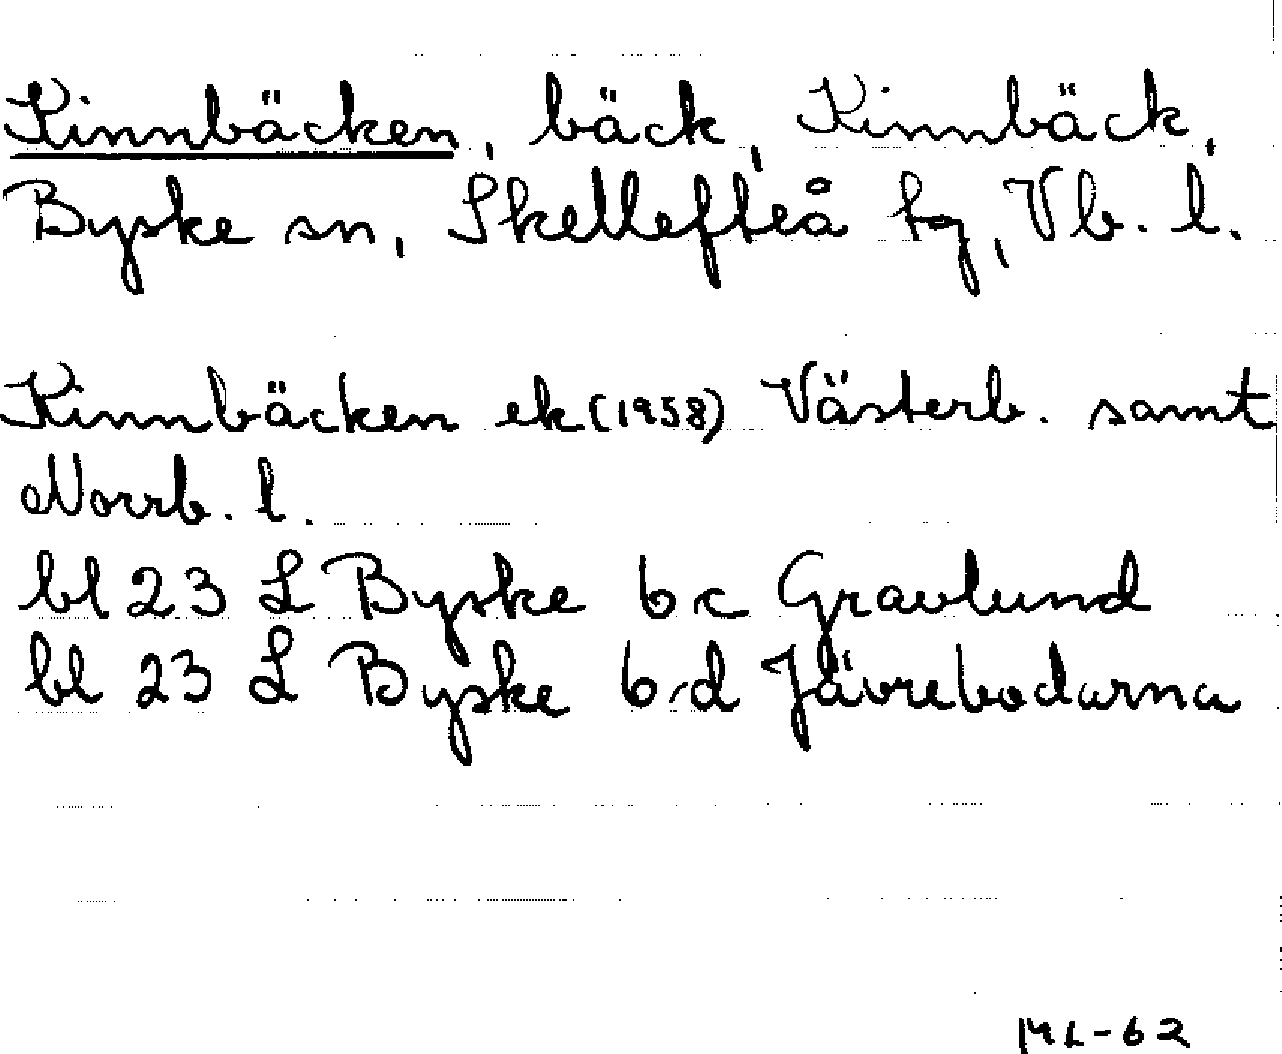 Kinnbäcken, bäck, Kinnbäck,
Byske sn, Skellefteå tg, Vb. l.
Kinnbäcken ek (1958) Västerb. samt
Norrb. l.
bl 23 L Byske 6 c Gravlund
bl 23 L Byske 6 d Jävrebodarna
ML-62